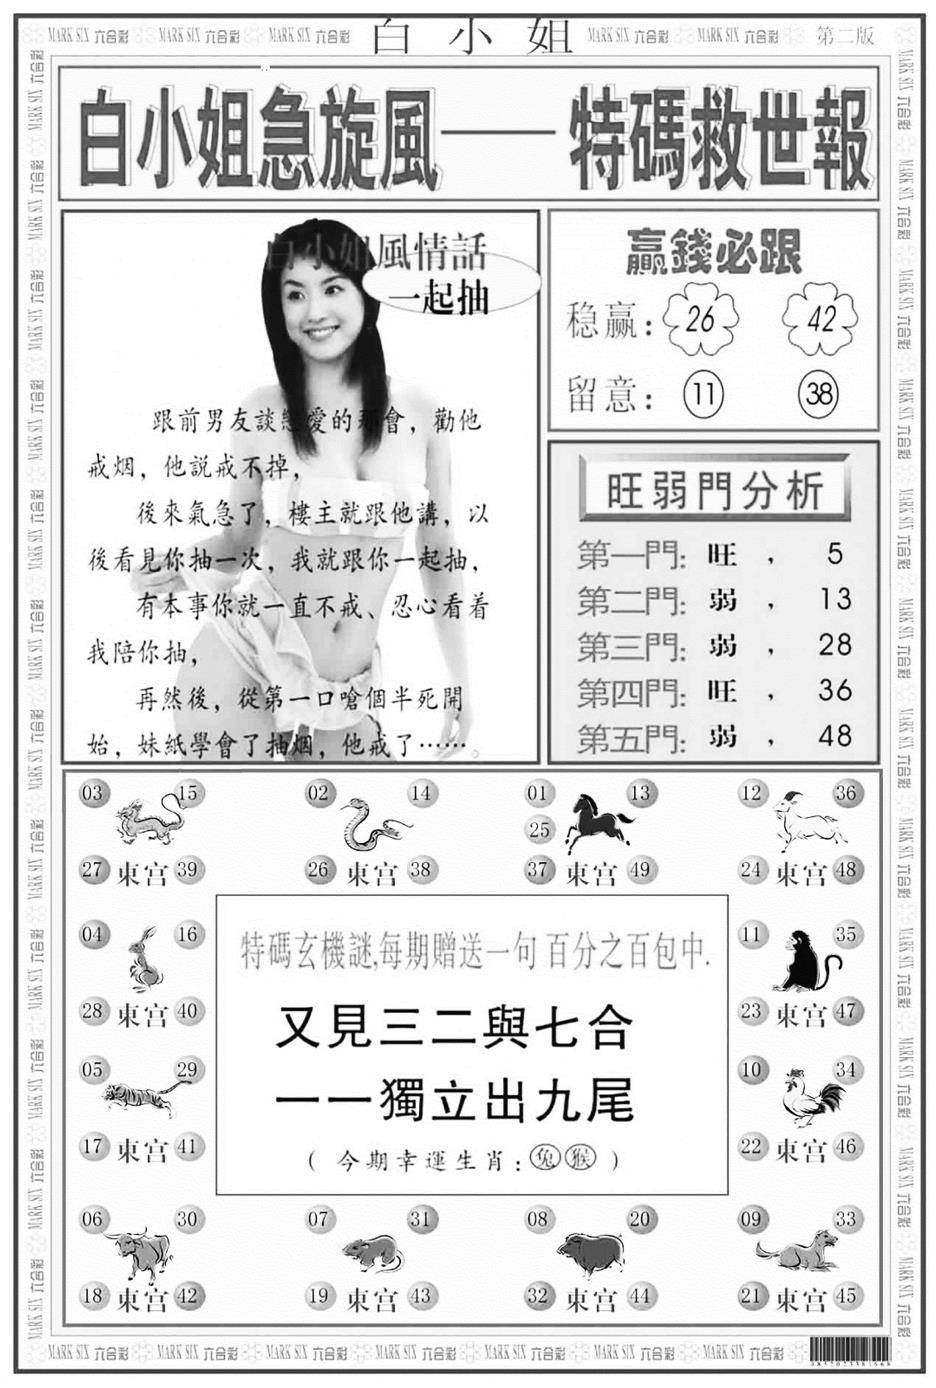 MARK SIX 六合彩 MARK SIX 六合彩 MARK SIX 六合彩 白小姐 MARK SIX 六合彩 MARK SIX 六合彩 第二版
白小姐急旋風——特碼救世報
白小姐風情話
一起抽
跟前男友談戀愛的那會，勸他
戒烟，他説戒不掉，
後來氣急了，樓主就跟他講，以
後看見你抽一次，我就跟你一起抽，
有本事你就一直不戒、忍心看着
我陪你抽，
再然後，從第一口嗆個半死開
始，妹紙學會了抽烟，他戒了……。
贏錢必跟
稳赢：26 42
留意：11 38
旺弱門分析
第一門：旺，5
第二門：弱，13
第三門：弱，28
第四門：旺，36
第五門：弱，48
03 15 02 14 01 13 12 36
25
27 東宫 39 26 東宫 38 37 東宫 49 24 東宫 48
04 16
28 東宫 40
05 29
17 東宫 41
特碼玄機謎,每期贈送一句 百分之百包中.
又見三二與七合
一一獨立出九尾
（今期幸運生肖：兔 猴）
11 35
23 東宫 47
10 34
22 東宫 46
06 30 07 31 08 20 09 33
18 東宫 42 19 東宫 43 32 東宫 44 21 東宫 45
MARK SIX 六合彩 MARK SIX 六合彩 MARK SIX 六合彩 MARK SIX 六合彩 MARK SIX 六合彩 MARK SIX 六合彩 MARK SIX 六合彩